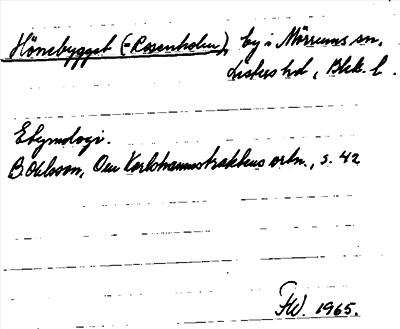 Hönebygget (=Rosenholm), by i Mörrums sn,
Listers hd, Blek. l.
Etymologi.
B. Ohlsson, Om Karlshamnstraktens ortn., s. 42
FW. 1965.